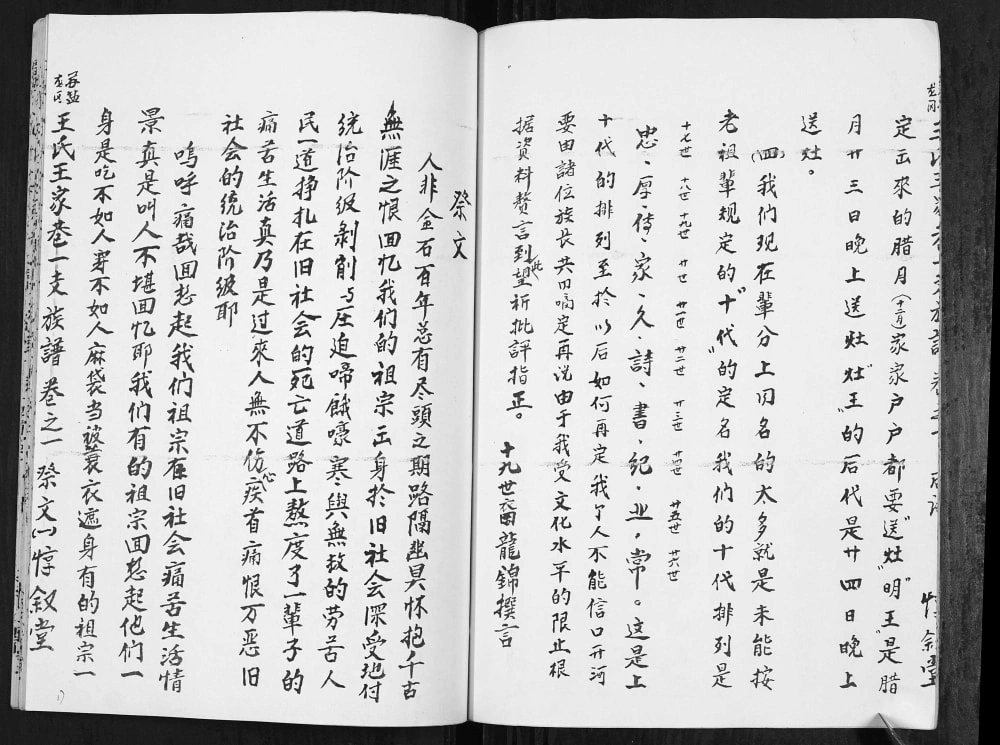 定出來的腊月(十二月)家家户户都要"送"灶"明"王"是腊
月廿三日晚上送"灶"王"的后代是廿四日晚上
送灶。
(四)我们现在輩分上同名的太多就是未能按
老祖輩规定的"十"代"的定名我们的十代排列是
十七世 十八世 十九世 廿世 廿一世 廿二世 廿三世 廿四世 廿五世 廿六世
忠、厚、传、家、久、詩、書、紀、业、常。这是上
十代的排列至於以后如何再定我个人不能信口开河
要由諸位族長共同啇定再说由于我受文化水平的限止根
据資料贅言到此望祈批評指正。
十九世 龍錦撰言
祭文
人非金石百年总有尽頭之期路隔幽冥怀抱千古
無涯之恨回忆我们的祖宗出身於旧社会深受地付
统治阶级剥削与压迫啼餓嚎寒與無救的劳苦人
民一道挣扎在旧社会的死亡道路上熬度了一輩子的
痛苦生活真乃是过來人無不伤心疾首痛恨万恶旧
社会的统治阶级耶
嗚呼痛哉回想起我们祖宗在旧社会痛苦生活情
景真是叫人不堪回忆耶我们有的祖宗回想起他们一
身是吃不如人穿不如人麻袋当被蓑衣遮身有的祖宗一
王氏王家巷一支族譜 卷之一 祭文 惇叙堂